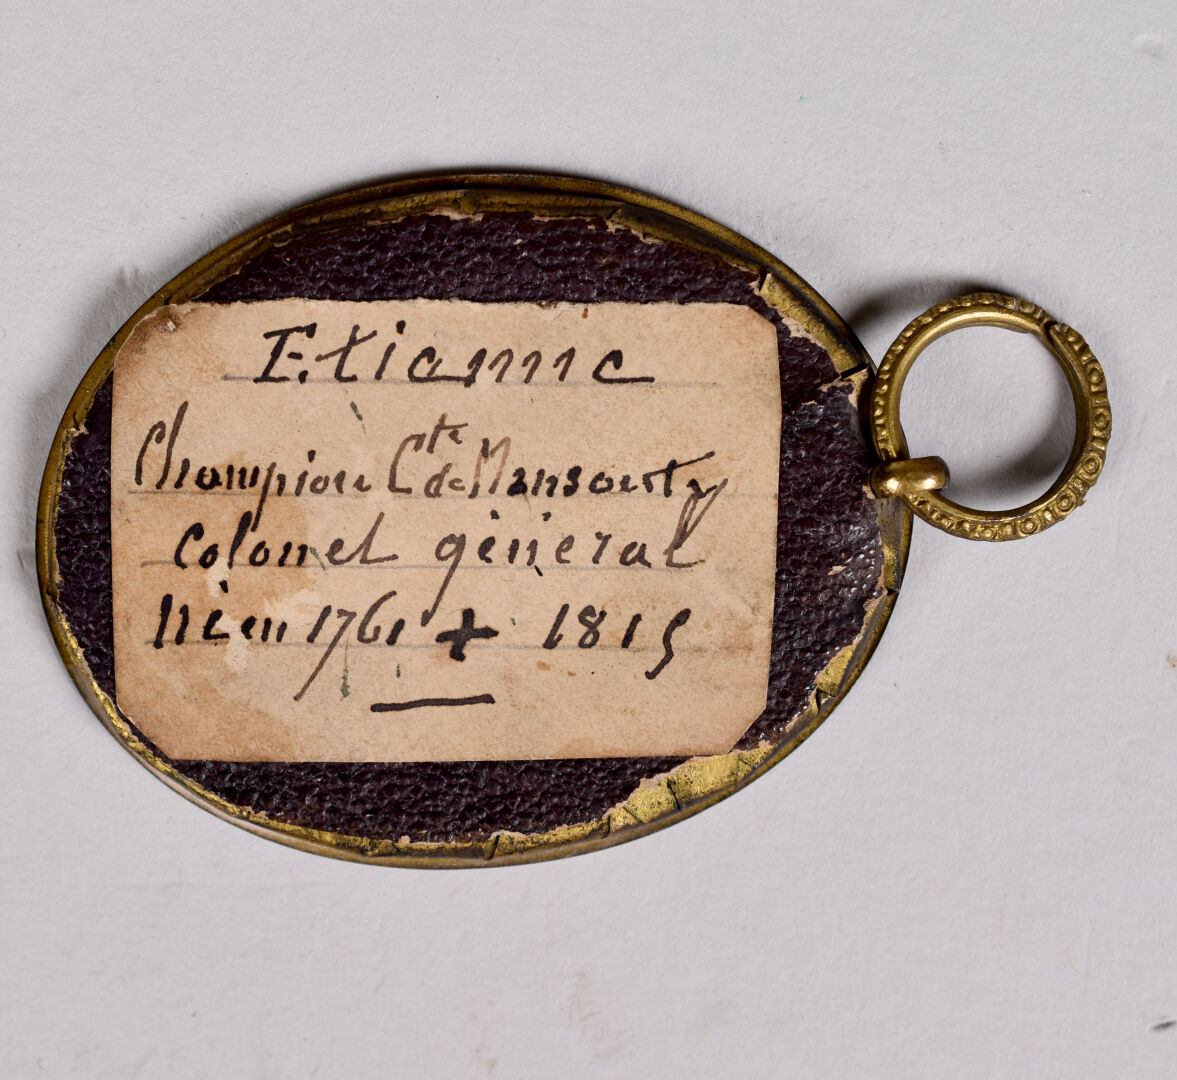 Etienne
Champion Cte de Nansouty
colonel général
né en 1761 + 1815